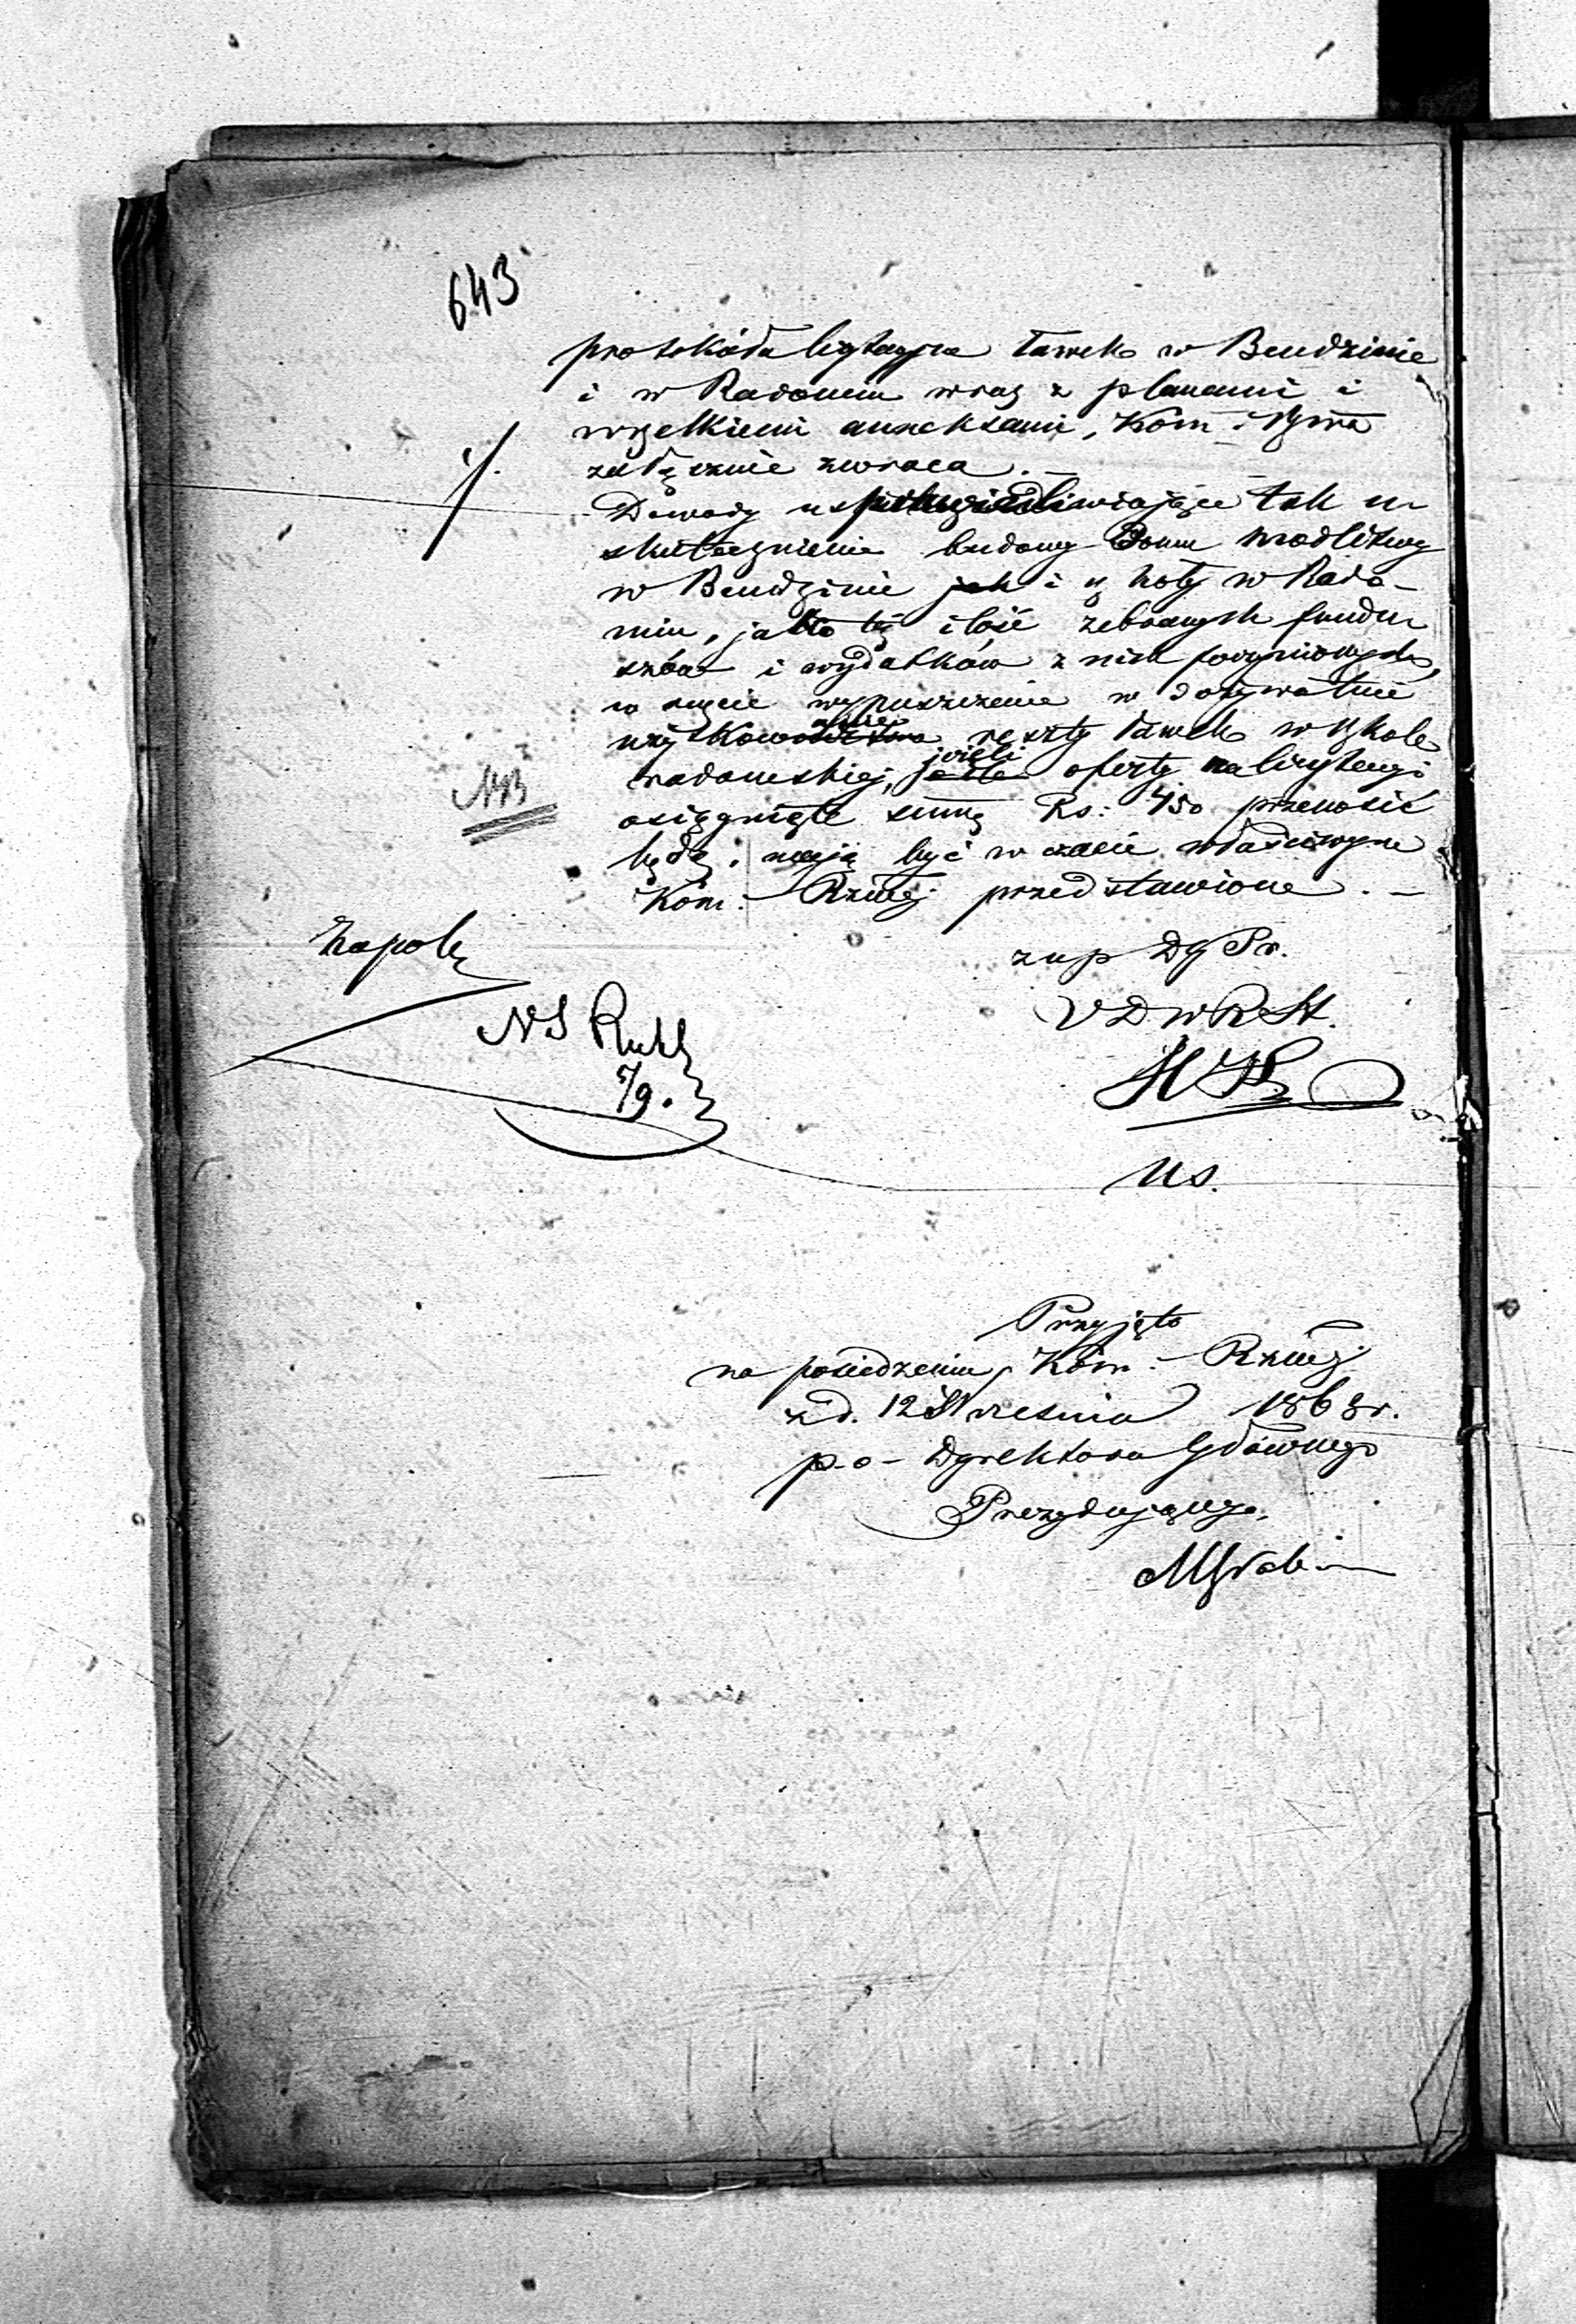 643
protokóła licytacyjne ławek w Bendzinie
i w Radomiu wraz z planami i
wszelkiemi anneksami, Kom: Rząwa
załącznie zwraca. —
%
Dowody usprawiedliwiające tak u-
skutecznienie budowy Domu modlitwy
w Bendzinie jak i szkoły w Rado-
miu, jako też ilość zebranych fundu
szów i wydatków z nich poczynionych,
w razie wypuszczenia w dożywotnie
użytkowanie reszty ławek w szkole
radomskiej, jeżeli oferty na licytacyi
osiągnięte summę Rs: 450 przenosić
NB
będą, mają być w czasie właściwym
Kom: Rząwej przedstawione. —
zup Dg Pr.
N S Rutk
7/9.
V D W R St.
Ns.
Przyjęto
na posiedzeniu Kom: Rząwej
z d. 12 Września 1868 r.
p. o. Dyrektora Głównego
Prezydującego,